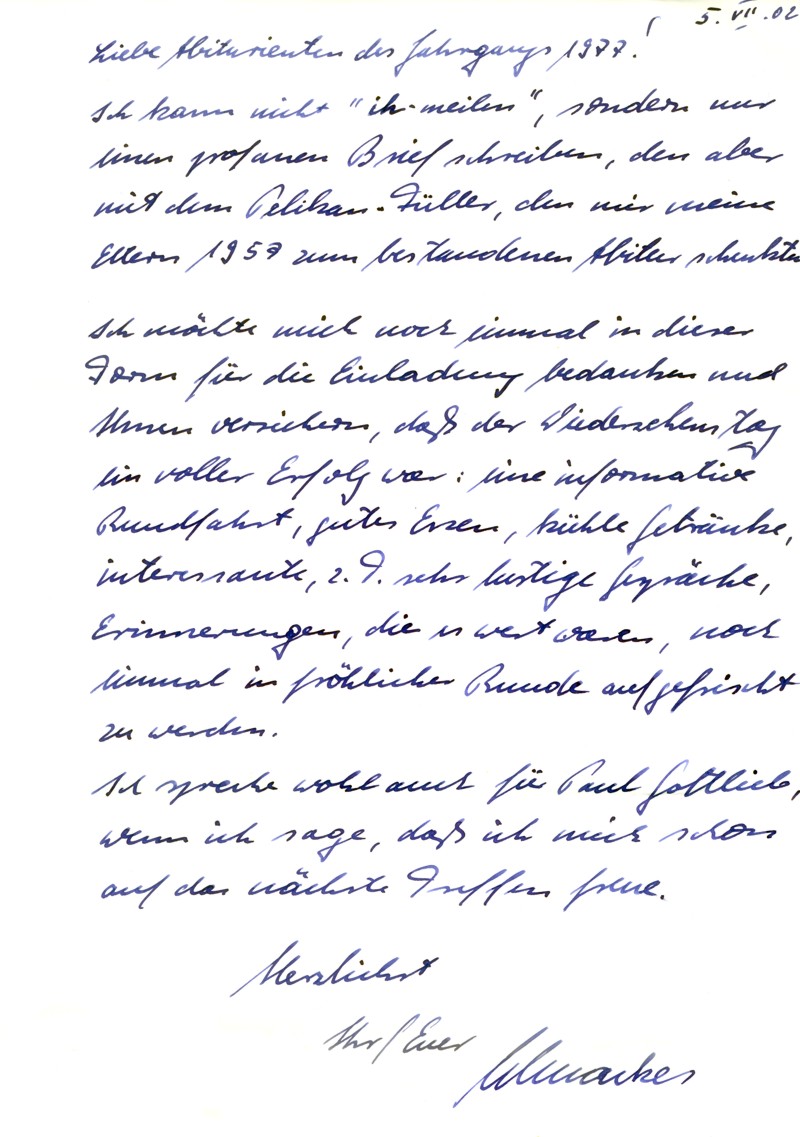 5. VII. 02
Liebe Abiturienten des Jahrgangs 1977!
Ich kann nicht "ih-meilen", sondern nur
einen profanen Brief schreiben, den aber
mit dem Pelikan-Füller, den mir meine
Eltern 1957 zum bestandenen Abitur schenkten
Ich möchte mich noch einmal in dieser
Form für die Einladung bedanken und
Ihnen versichern, daß der Wiedersehenstag
ein voller Erfolg war: eine informative
Rundfahrt, gutes Essen, kühle Getränke,
interessante, z. T. sehr lustige Gespräche,
Erinnerungen, die es wert waren, noch
einmal in fröhlicher Runde aufgefrischt
zu werden.
Ich spreche wohl auch für Paul Gottlieb,
wenn ich sage, daß ich mich schon
auf das nächste Treffen freue.
Herzlichst
Ihr/Euer